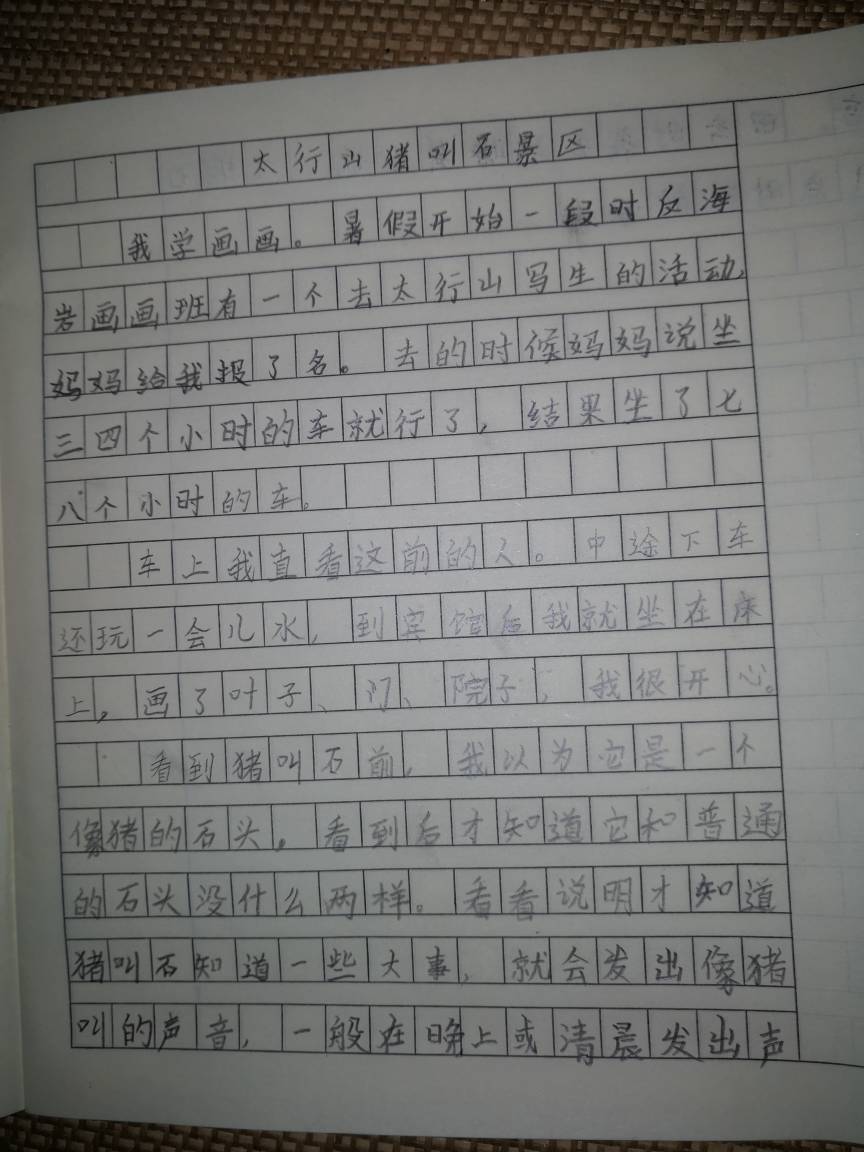 太行山猪叫石景区
我学画画。暑假开始一段时反海
岩画画班有一个去太行山写生的活动,
妈妈给我报了名。去的时候妈妈说坐
三四个小时的车就行了,结果坐了七
八个小时的车。
车上我直看这前的人。中途下车
还玩一会儿水,到宾馆后我就坐在床
上,画了叶子、门、院子,我很开心。
看到猪叫石前,我以为它是一个
像猪的石头。看到后才知道它和普通
的石头没什么两样。看看说明才知道
猪叫石知道一些大事,就会发出像猪
叫的声音,一般在晚上或清晨发出声